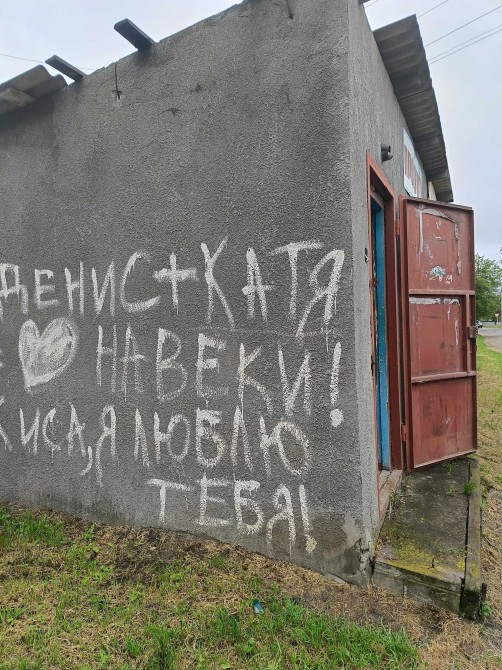 ДЕНИС+КАТЯ
НАВЕКИ!
КИСА, Я ЛЮБЛЮ
ТЕБЯ!